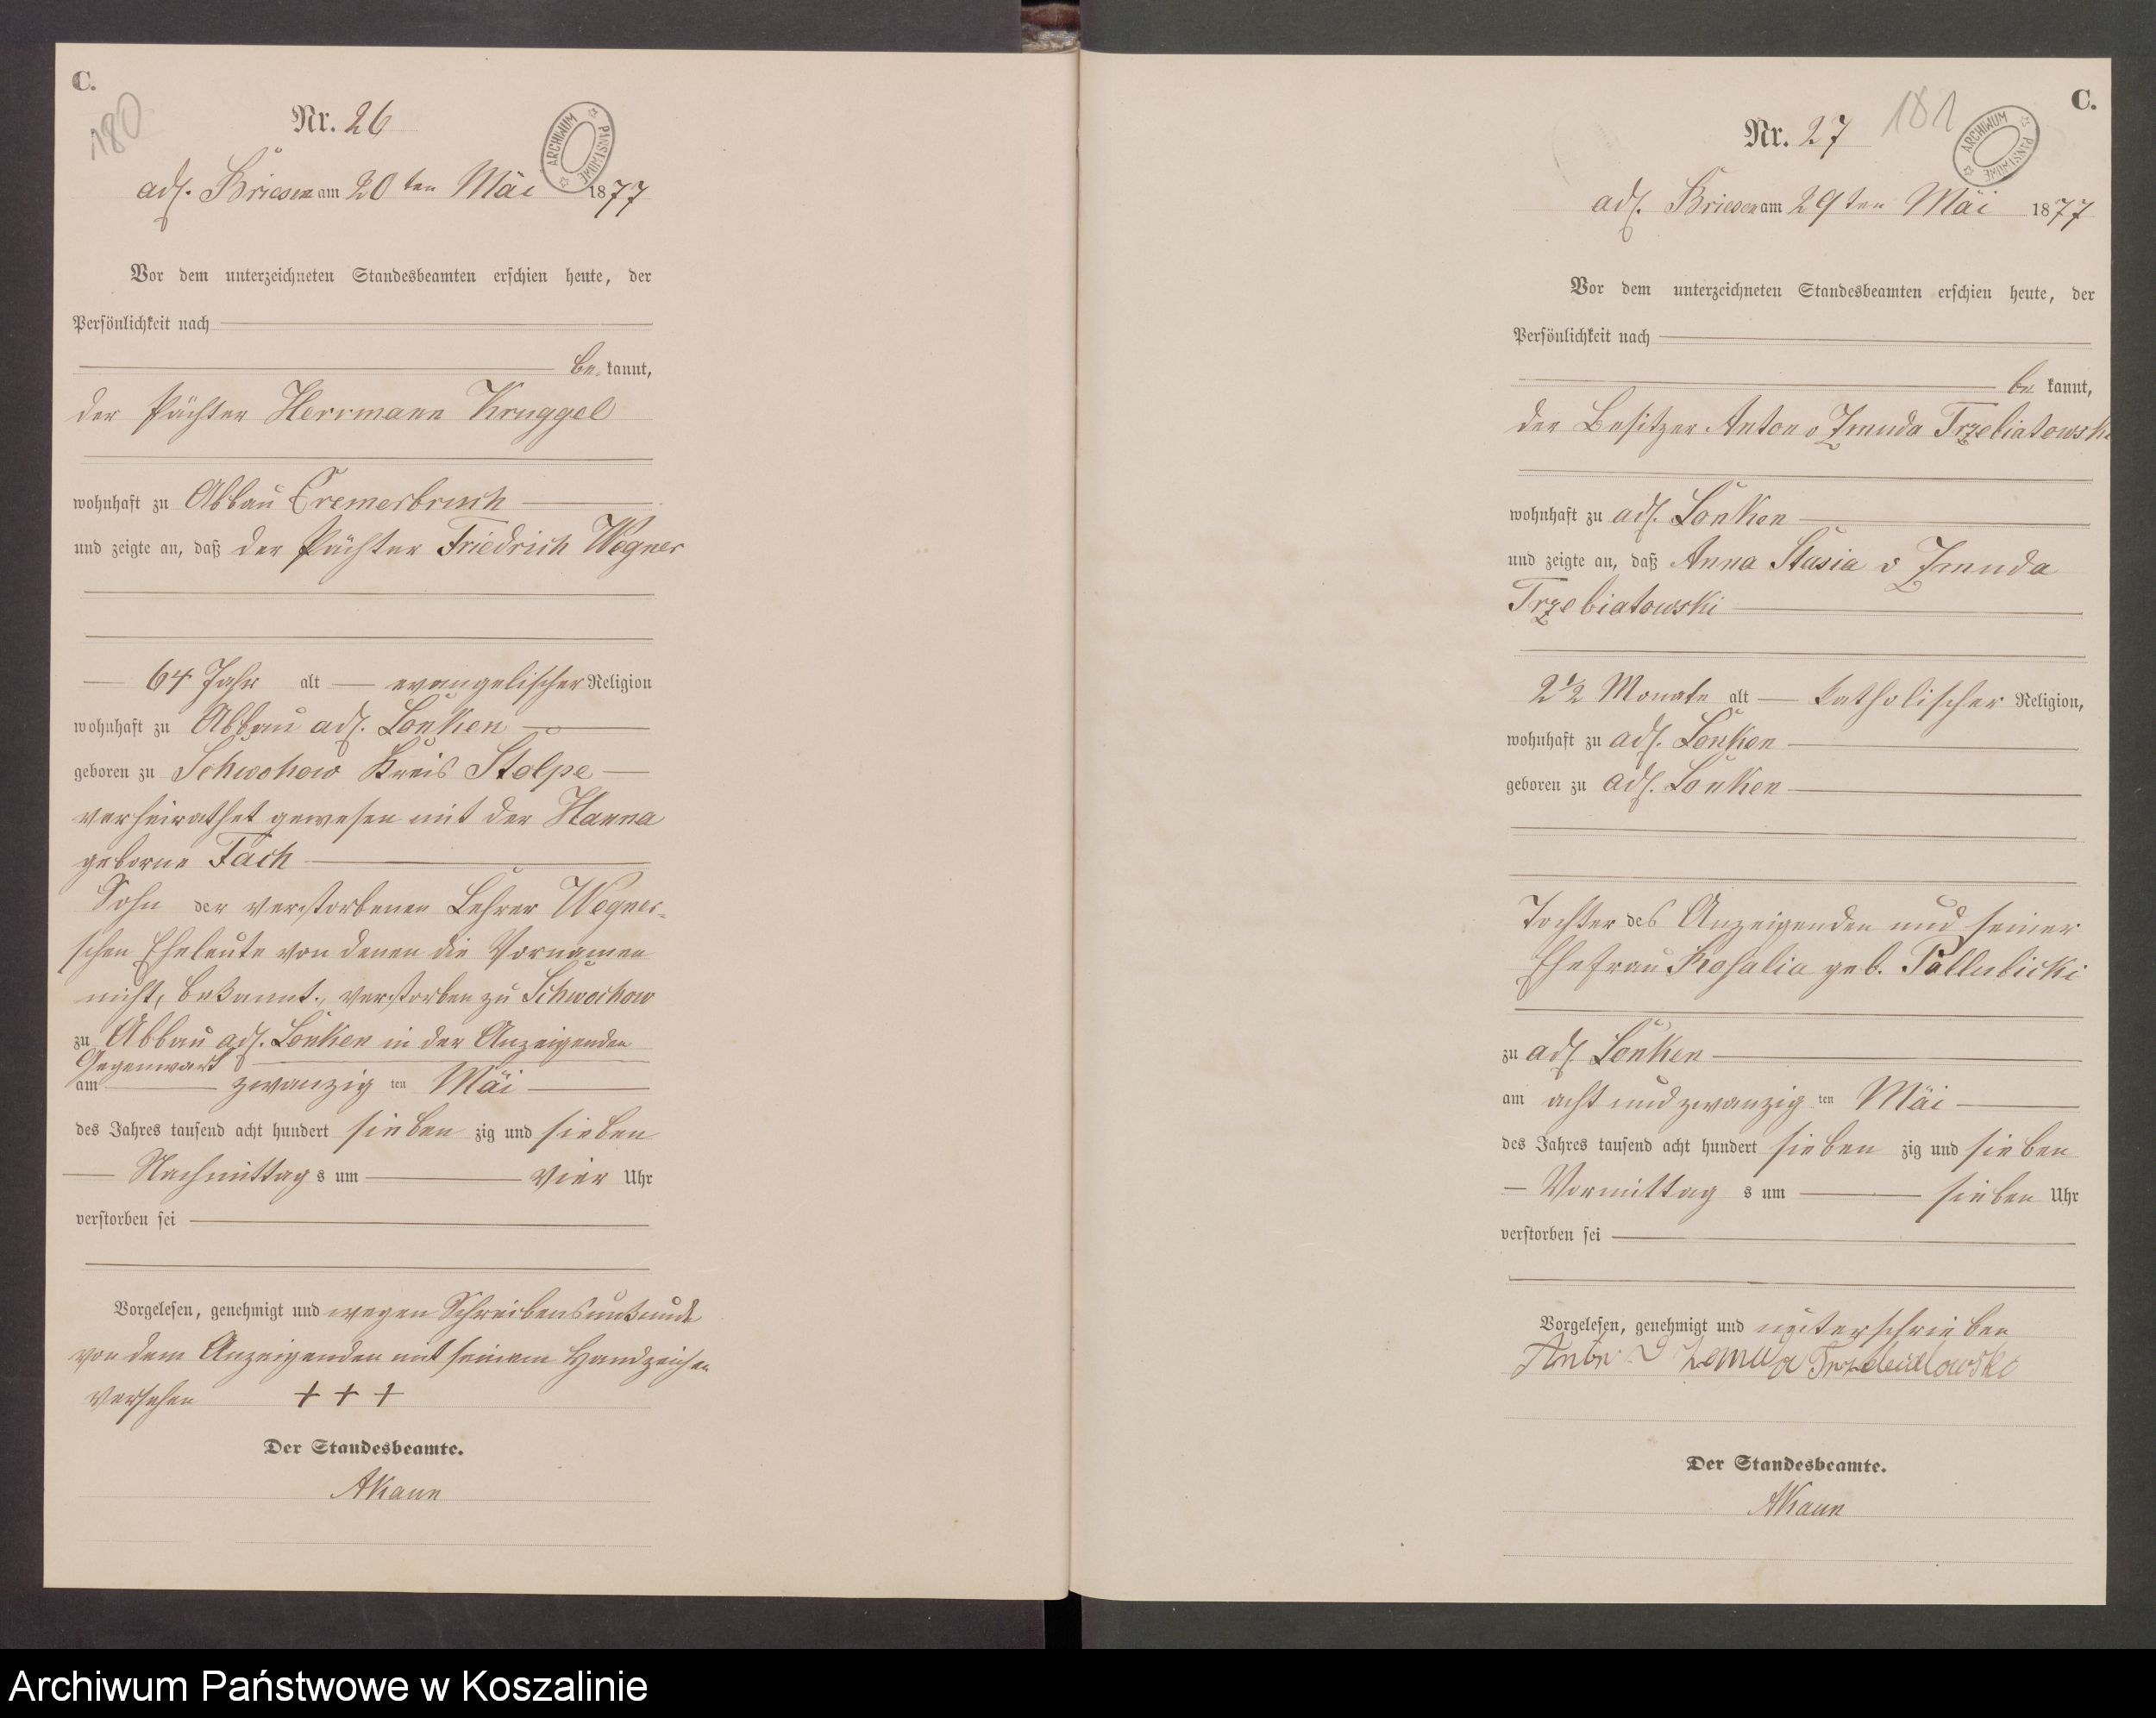 C.
180
Nr. 26
ARCHIWUM PAŃSTWOWE
adl. Briesen am 20ten Mai 1877
Vor dem unterzeichneten Standesbeamten erschien heute, der
Persönlichkeit nach
be kannt,
der Pächter Herrmann Kruggel
wohnhaft zu Abbau Cremerbruch
und zeigte an, daß der Pächter Friedrich Wegner
64 Jahr alt evangelischer Religion
wohnhaft zu Abbau adl. Lonken
geboren zu Schwochow Kreis Stolpe
verheirathet gewesen mit der Hanna
geborne Fach
Sohn der verstorbenen Lehrer Wegner-
schen Eheleute von denen die Vornamen
nicht, bekannt., verstorben zu Schwochow
zu Abbau adl. Lonken in der Anzeigenden
Gegenwart
am zwanzig ten Mai
des Jahres tausend acht hundert sieben zig und sieben
Nachmittag s um vier Uhr
verstorben sei
Vorgelesen, genehmigt und wegen Schreibensunkunde
von dem Anzeigenden mit seinem Handzeichen
versehen + + +
Der Standesbeamte.
AKaun
C.
181
Nr. 27
ARCHIWUM PAŃSTWOWE
adl. Briesen am 29ten Mai 1877
Vor dem unterzeichneten Standesbeamten erschien heute, der
Persönlichkeit nach
be kannt,
der Besitzer Anton v Zmuda Trzebiatowski
wohnhaft zu adl. Lonken
und zeigte an, daß Anna Stasia v Zmuda
Trzebiatowski
2 1/2 Monate alt katholischer Religion,
wohnhaft zu adl. Lonken
geboren zu adl. Lonken
Tochter des Anzeigenden und seiner
Ehefrau Rosalia geb. Pallubicki
zu adl. Lonken
am acht und zwanzig ten Mai
des Jahres tausend acht hundert sieben zig und sieben
Vormittag s um sieben Uhr
verstorben sei
Vorgelesen, genehmigt und unterschrieben
Der Standesbeamte.
AKaun
Archiwum Państwowe w Koszalinie